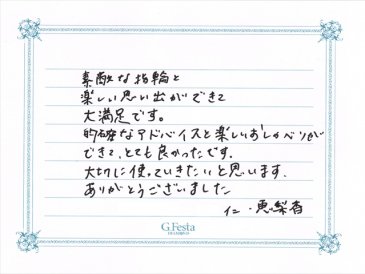 素敵な指輪と
楽しい思い出ができて
大満足です。
的確なアドバイスと楽しいおしゃべりが
できて、とても良かったです。
大切に使っていきたいと思います。
ありがとうございました
仁・恵梨香
G.Festa